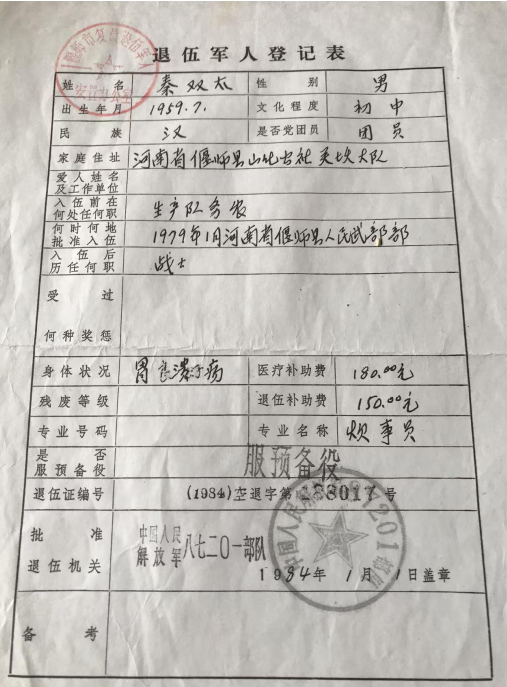 退伍军人登记表
姓名 秦双太 性别 男
出生年月 1959.7. 文化程度 初中
民族 汉 是否党团员 团员
家庭住址 河南省偃师县山化公社 大队
爱人姓名
及工作单位
入伍前在
何处任何职 生产队务农
何时何地
批准入伍 1979年1月河南省偃师县人民武部部
入伍后
历任何职 战士
受过
何种奖惩
身体状况 胃 溃疡病 医疗补助费 180.00元
残废等级 退伍补助费 150.00元
专业号码 专业名称 炊事员
是否
服预备役 服预备役
退伍证编号 (1984)空退字第138017号
批准
退伍机关 中国人民
解放军 八七二〇一部队
1984年1月1日盖章
备考